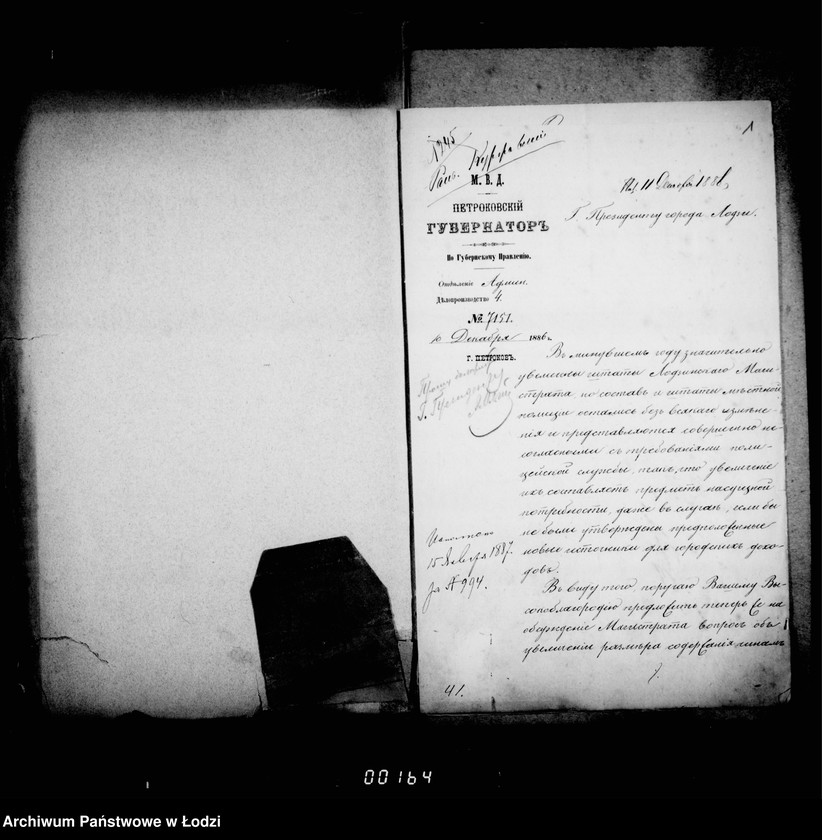 1
М. В. Д.
ПЕТРОКОВСКІЙ
ГУБЕРНАТОРЪ
По Губернскому Правленію.
Отдѣленіе Админ.
Дѣлопроизводство 4.
№ 7151.
10 Декабря 1886 г.
Г. ПЕТРОКОВЪ.
11 Декабря 1886
Г. Президенту города Лодзи.
Въ минувшемъ году значительно
увеличены штаты Лодзинскаго Маги-
страта, но составъ и штаты мѣстной
полиціи остались безъ всякаго измѣне-
нія и представляются совершенно не-
согласными съ требованіями поли-
цейской службы, такъ, что увеличеніе
ихъ составляетъ предметъ насущной
потребности, даже въ случаѣ, если бы
не были утверждены предположенные
новые источники для городскихъ дохо-
довъ.
Въ виду того, поручаю Вашему Вы-
сокоблагородію предложить теперь же на
обсужденіе Магистрата вопросъ объ
увеличеніи размѣра содержанія чинамъ
Исполнено
15 Января 1887 г.
за № 994.
41.
00164
Archiwum Państwowe w Łodzi